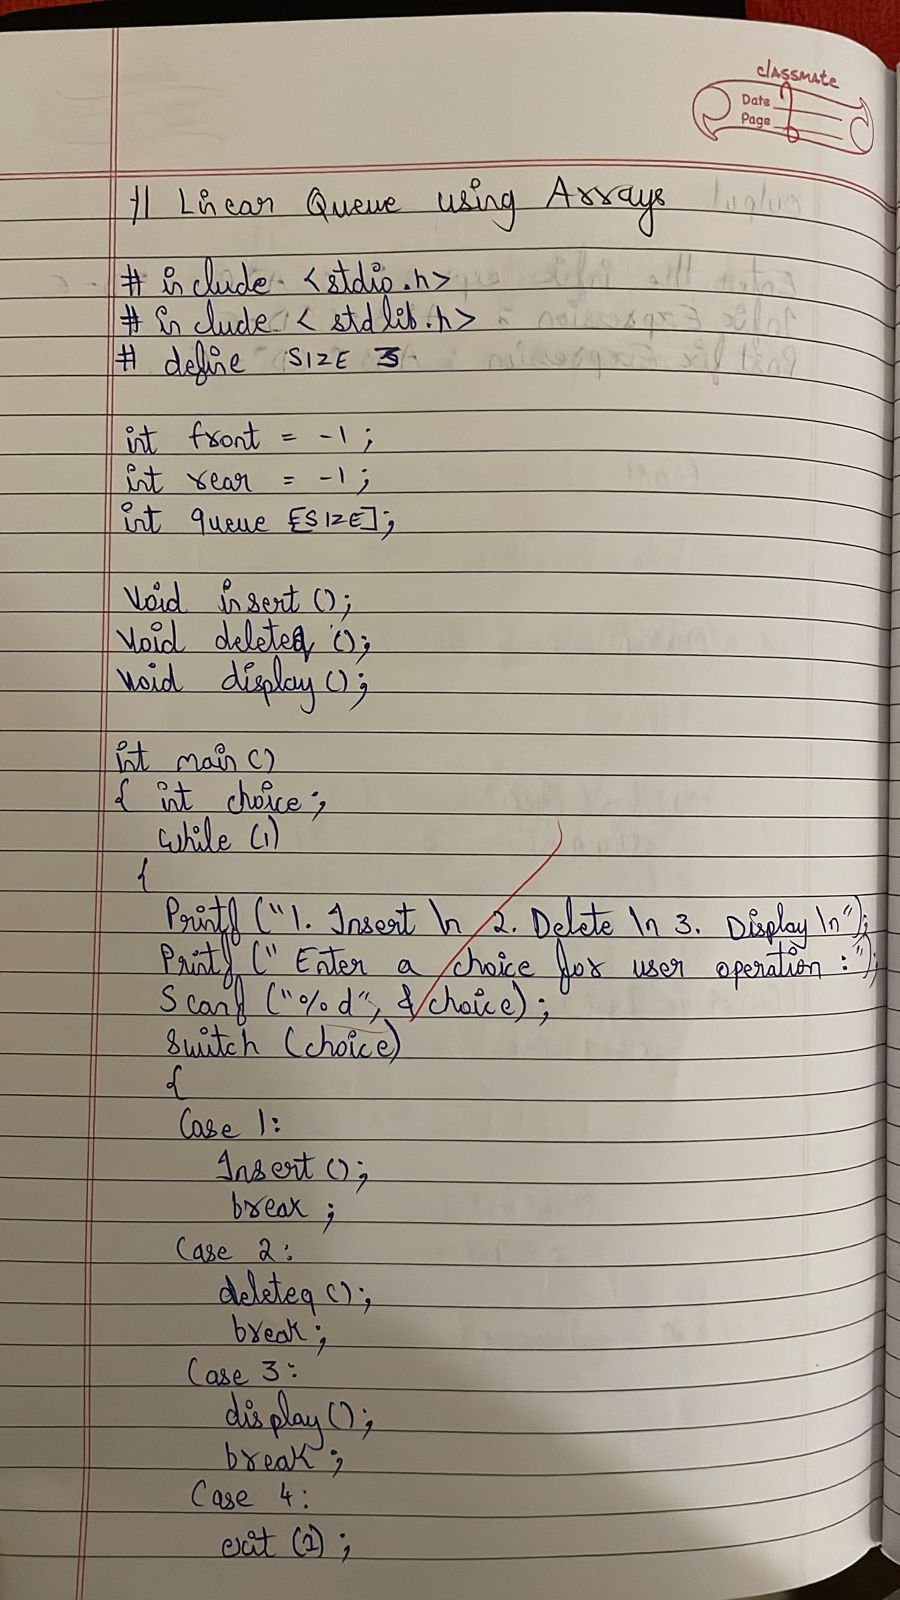 classmate
Date
Page
// Linear Queue using Arrays
# include <stdio.h>
# include < stdlib.h>
# define SIZE 3
int front = -1;
int rear = -1;
int queue [SIZE];
Void insert ();
Void deleteq ();
Void display ();
int main ()
{ int choice;
while (1)
{
Printf ("1. Insert \n 2. Delete \n 3. Display \n");
Printf (" Enter a choice for user operation : ");
Scanf ("%d", &choice);
Switch (choice)
{
Case 1:
Insert ();
break;
Case 2:
deleteq ();
break;
Case 3:
display ();
break;
Case 4:
exit (1);